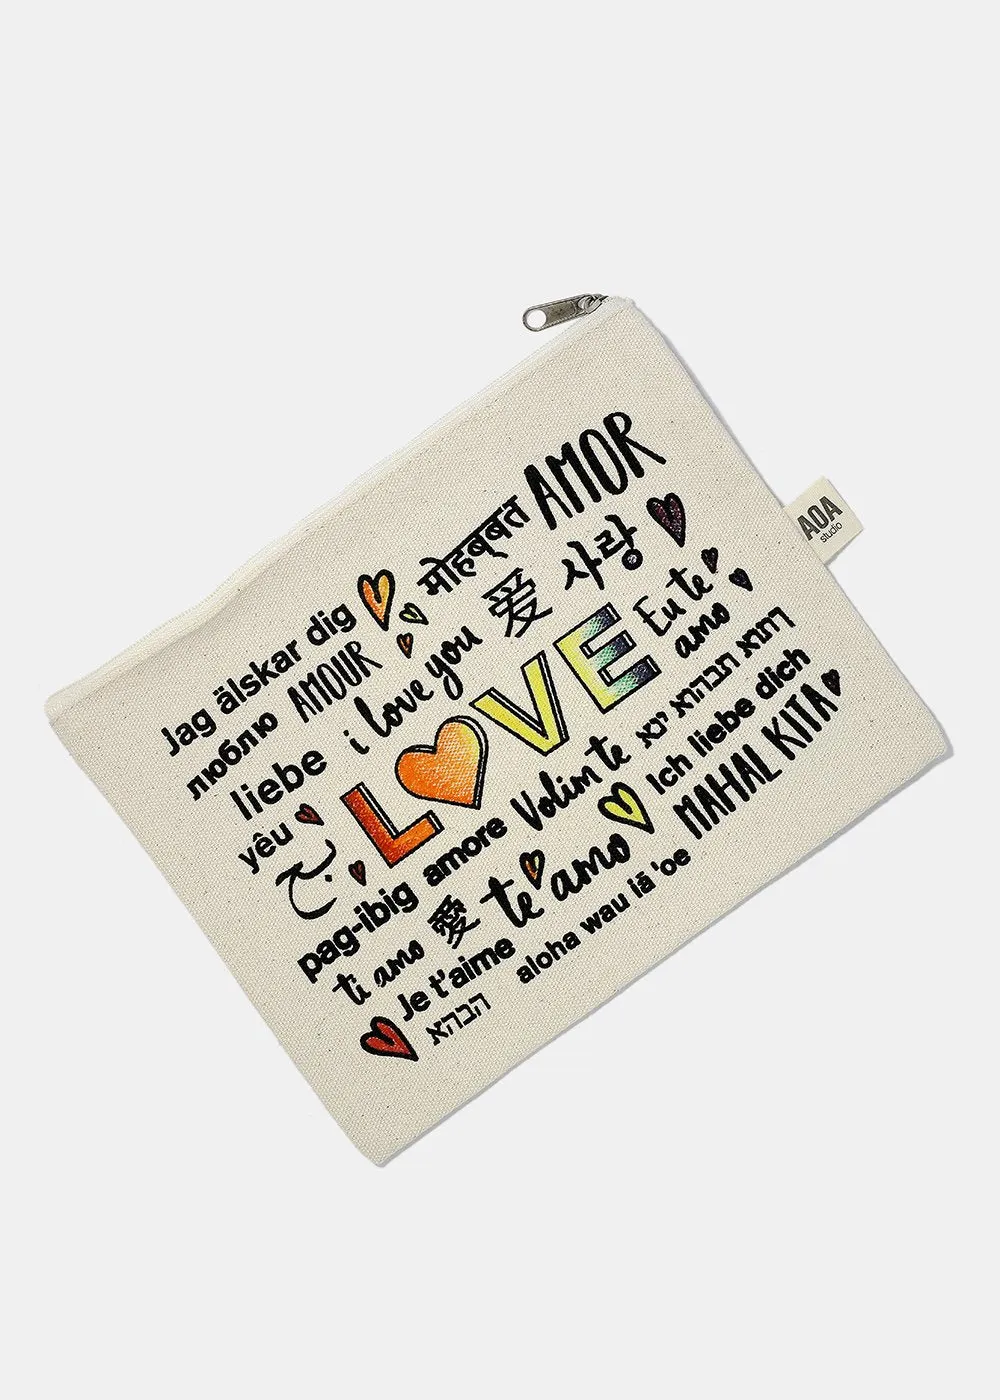 AMOR
मोहब्बत
사랑
Jag älskar dig
爱
Eu te
amo
AMOUR
i love you
люблю
LOVE
liebe
אני אוהבת אותך
yêu
Volim te
Ich liebe dich
amore
MAHAL KITA
pag-ibig
te amo
愛
ti amo
aloha wau iā 'oe
Je t'aime
אהבה
AOA
studio